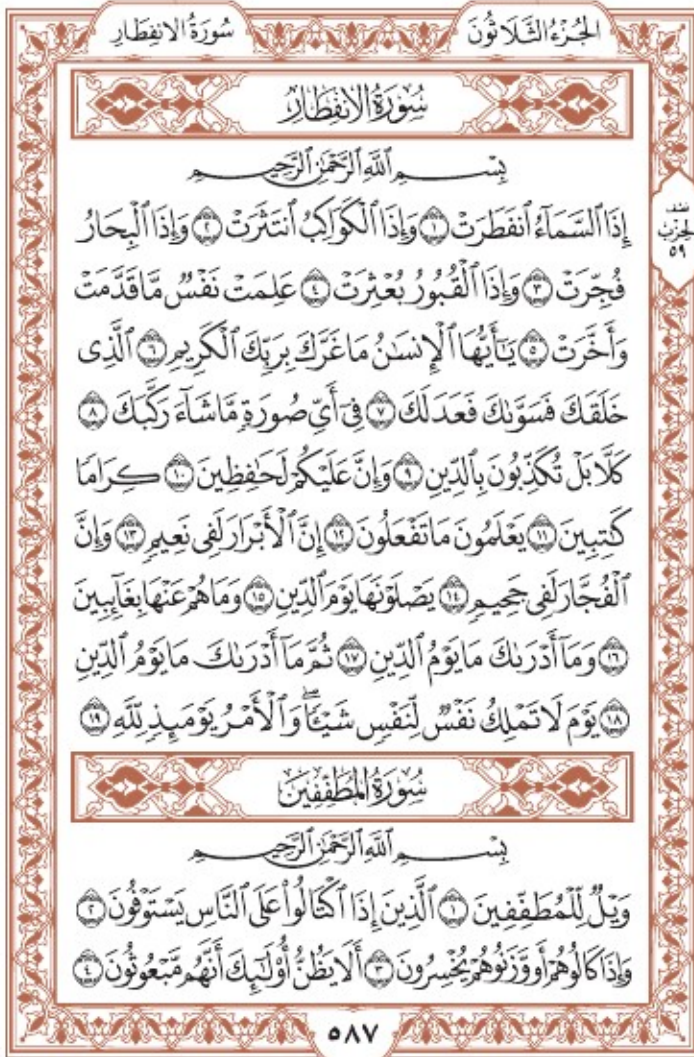 سُورَةُ الانفِطَارِ
الجُزْءُ الثَّلَاثُونَ
سُورَةُ الانفِطَارِ
بِسْمِ ٱللَّهِ ٱلرَّحْمَٰنِ ٱلرَّحِيمِ
إِذَا ٱلسَّمَآءُ ٱنفَطَرَتْ ١ وَإِذَا ٱلْكَوَاكِبُ ٱنتَثَرَتْ ٢ وَإِذَا ٱلْبِحَارُ
فُجِّرَتْ ٣ وَإِذَا ٱلْقُبُورُ بُعْثِرَتْ ٤ عَلِمَتْ نَفْسٌ مَّا قَدَّمَتْ
وَأَخَّرَتْ ٥ يَـٰٓأَيُّهَا ٱلْإِنسَـٰنُ مَا غَرَّكَ بِرَبِّكَ ٱلْكَرِيمِ ٦ ٱلَّذِى
خَلَقَكَ فَسَوَّىٰكَ فَعَدَلَكَ ٧ فِىٓ أَىِّ صُورَةٍ مَّا شَآءَ رَكَّبَكَ ٨
كَلَّا بَلْ تُكَذِّبُونَ بِٱلدِّينِ ٩ وَإِنَّ عَلَيْكُمْ لَحَـٰفِظِينَ ١٠ كِرَامًا
كَـٰتِبِينَ ١١ يَعْلَمُونَ مَا تَفْعَلُونَ ١٢ إِنَّ ٱلْأَبْرَارَ لَفِى نَعِيمٍ ١٣ وَإِنَّ
ٱلْفُجَّارَ لَفِى جَحِيمٍ ١٤ يَصْلَوْنَهَا يَوْمَ ٱلدِّينِ ١٥ وَمَا هُمْ عَنْهَا بِغَآئِبِينَ
١٦ وَمَآ أَدْرَىٰكَ مَا يَوْمُ ٱلدِّينِ ١٧ ثُمَّ مَآ أَدْرَىٰكَ مَا يَوْمُ ٱلدِّينِ
١٨ يَوْمَ لَا تَمْلِكُ نَفْسٌ لِّنَفْسٍ شَيْـًٔا ۖ وَٱلْأَمْرُ يَوْمَئِذٍ لِّلَّهِ ١٩
نصف
الحزب
٥٩
سُورَةُ المُطَفِّفِينَ
بِسْمِ ٱللَّهِ ٱلرَّحْمَٰنِ ٱلرَّحِيمِ
وَيْلٌ لِّلْمُطَفِّفِينَ ١ ٱلَّذِينَ إِذَا ٱكْتَالُوا۟ عَلَى ٱلنَّاسِ يَسْتَوْفُونَ ٢
وَإِذَا كَالُوهُمْ أَو وَّزَنُوهُمْ يُخْسِرُونَ ٣ أَلَا يَظُنُّ أُو۟لَـٰٓئِكَ أَنَّهُم مَّبْعُوثُونَ ٤
٥٨٧